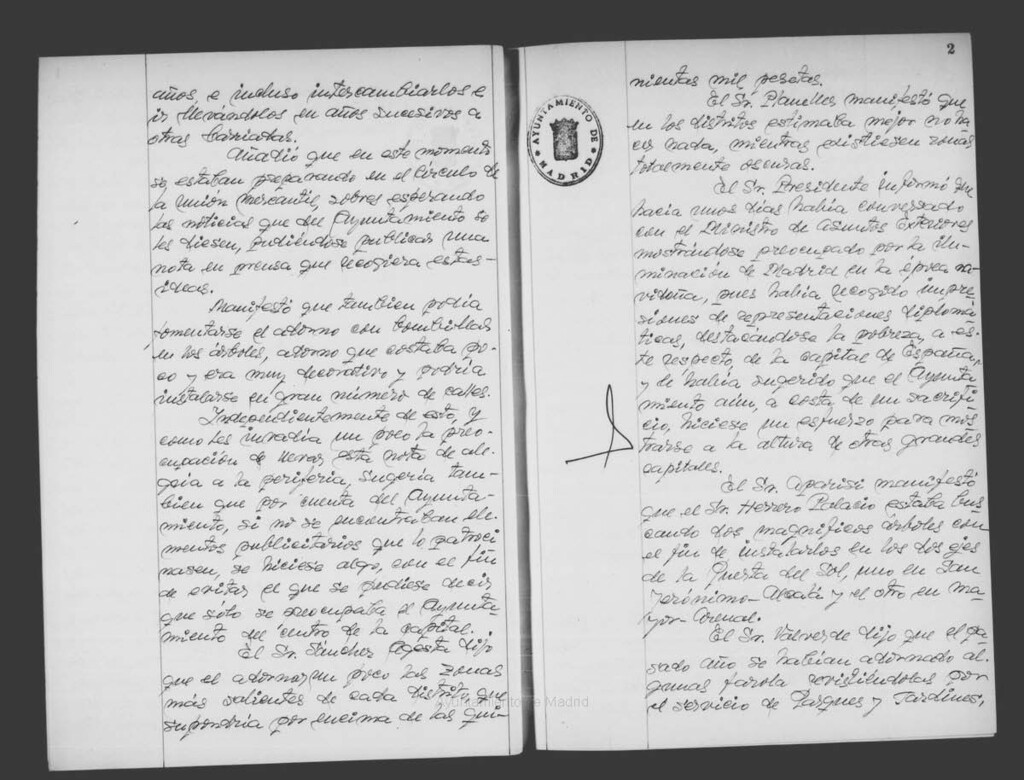 años, e incluso intercambiarlos e
ir llevándolos en años sucesivos a
otras barriadas.
Añadió que en este momento
se estaban preparando en el Círculo de
la Unión Mercantil, sobres esperando
las noticias que del Ayuntamiento se
les diesen, pudiéndose publicar una
nota en prensa que recogiera estas
ideas.
Manifestó que tambien podía
fomentarse el adorno con bombillas
en los árboles, adorno que costaba po-
co y era muy decorativo y podría
instalarse en gran número de calles.
Independientemente de esto, y
como les invadía un poco la preo-
cupación de llevar esta nota de ale-
gría a la periferia, sugería tam-
bien que por cuenta del Ayunta-
miento, si no se encontraban ele-
mentos publicitarios que lo patroci
nasen, se hiciese algo, con el fin
de evitar el que se pudiese decir
que sólo se preocupaba el Ayunta-
miento del centro de la capital.
El Sr. Sánchez Agesta dijo
que el adornar un poco las zonas
más salientes de cada distrito, que
supondría por encima de las qui-
2
AYUNTAMIENTO DE MADRID
nientas mil pesetas.
El Sr. Planelles manifestó que
en los distritos estimaba mejor no ha
cer nada, mientras existiesen zonas
totalmente oscuras.
El Sr. Presidente informó que
hacía unos días había conversado
con el Ministro de Asuntos Exteriores
mostrándose preocupado por la ilu-
minación de Madrid en la época na-
videña, pues había recogido impre-
siones de representaciones diplomá
ticas, destacándose la pobreza, a es-
te respecto, de la capital de España,
y le había sugerido que el Ayunta
miento aún, a costa de un sacrifi
cio, hiciese un esfuerzo para mos
trarse a la altura de otras grandes
capitales.
El Sr. Aparisi manifestó
que el Sr. Herrero Palacio estaba bus
cando dos magníficos árboles con
el fin de instalarlos en los dos ejes
de la Puerta del Sol, uno en San
Jerónimo-Alcalá y el otro en Ma
yor-Arenal.
El Sr. Valverde dijo que el pa
sado año se habían adornado al
gunas farola revistiéndolas por
el servicio de Parques y Jardines,
Ayuntamiento de Madrid